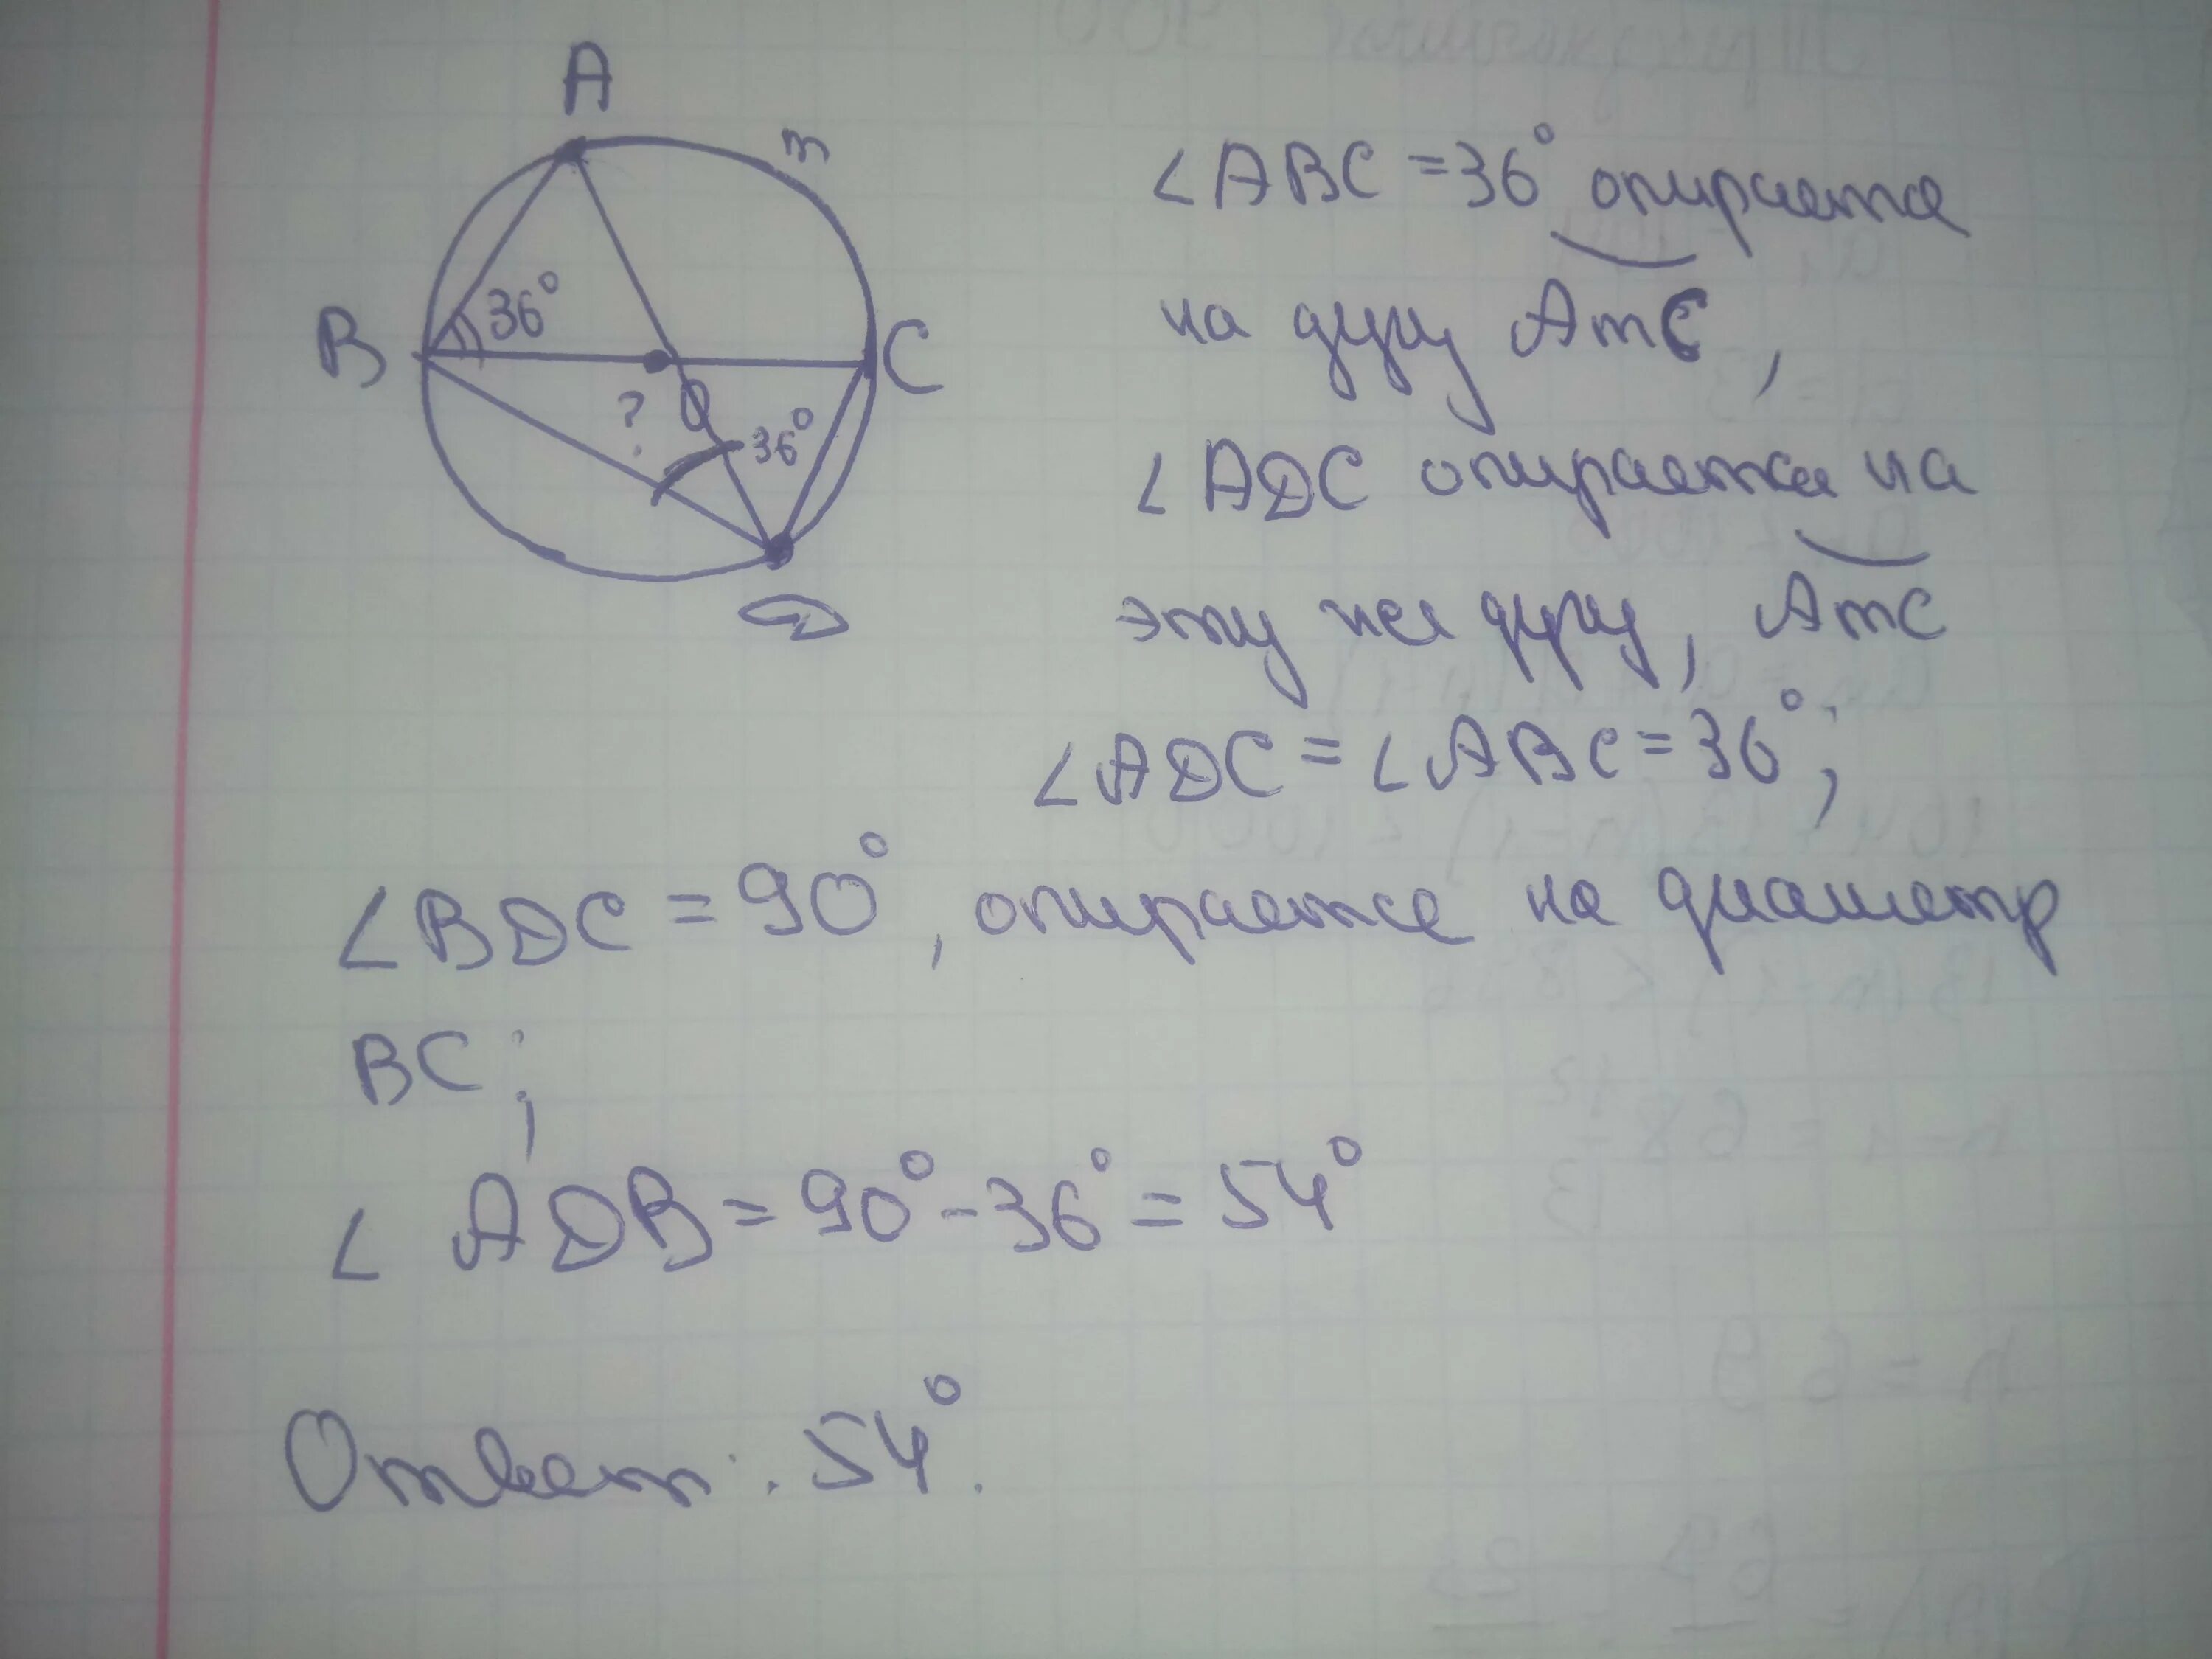 A
m
36°
B
C
?
O
36°
D
∠ABC = 36° опирается
на дугу AmC,
∠ADC опирается на
эту же дугу, AmC
∠ADC = ∠ABC = 36°;
∠BDC = 90°, опирается на диаметр
BC;
∠ ADB = 90° - 36° = 54°
Ответ: 54°.